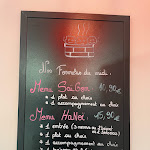 Nos Formules du midi:
Menu SaïGon: 10,90€
1 plat au choix
1 accompagnement au choix
Menu HaNoï: 15,90€
1 entrée
1 plat au choix
1 accompagnement au choix